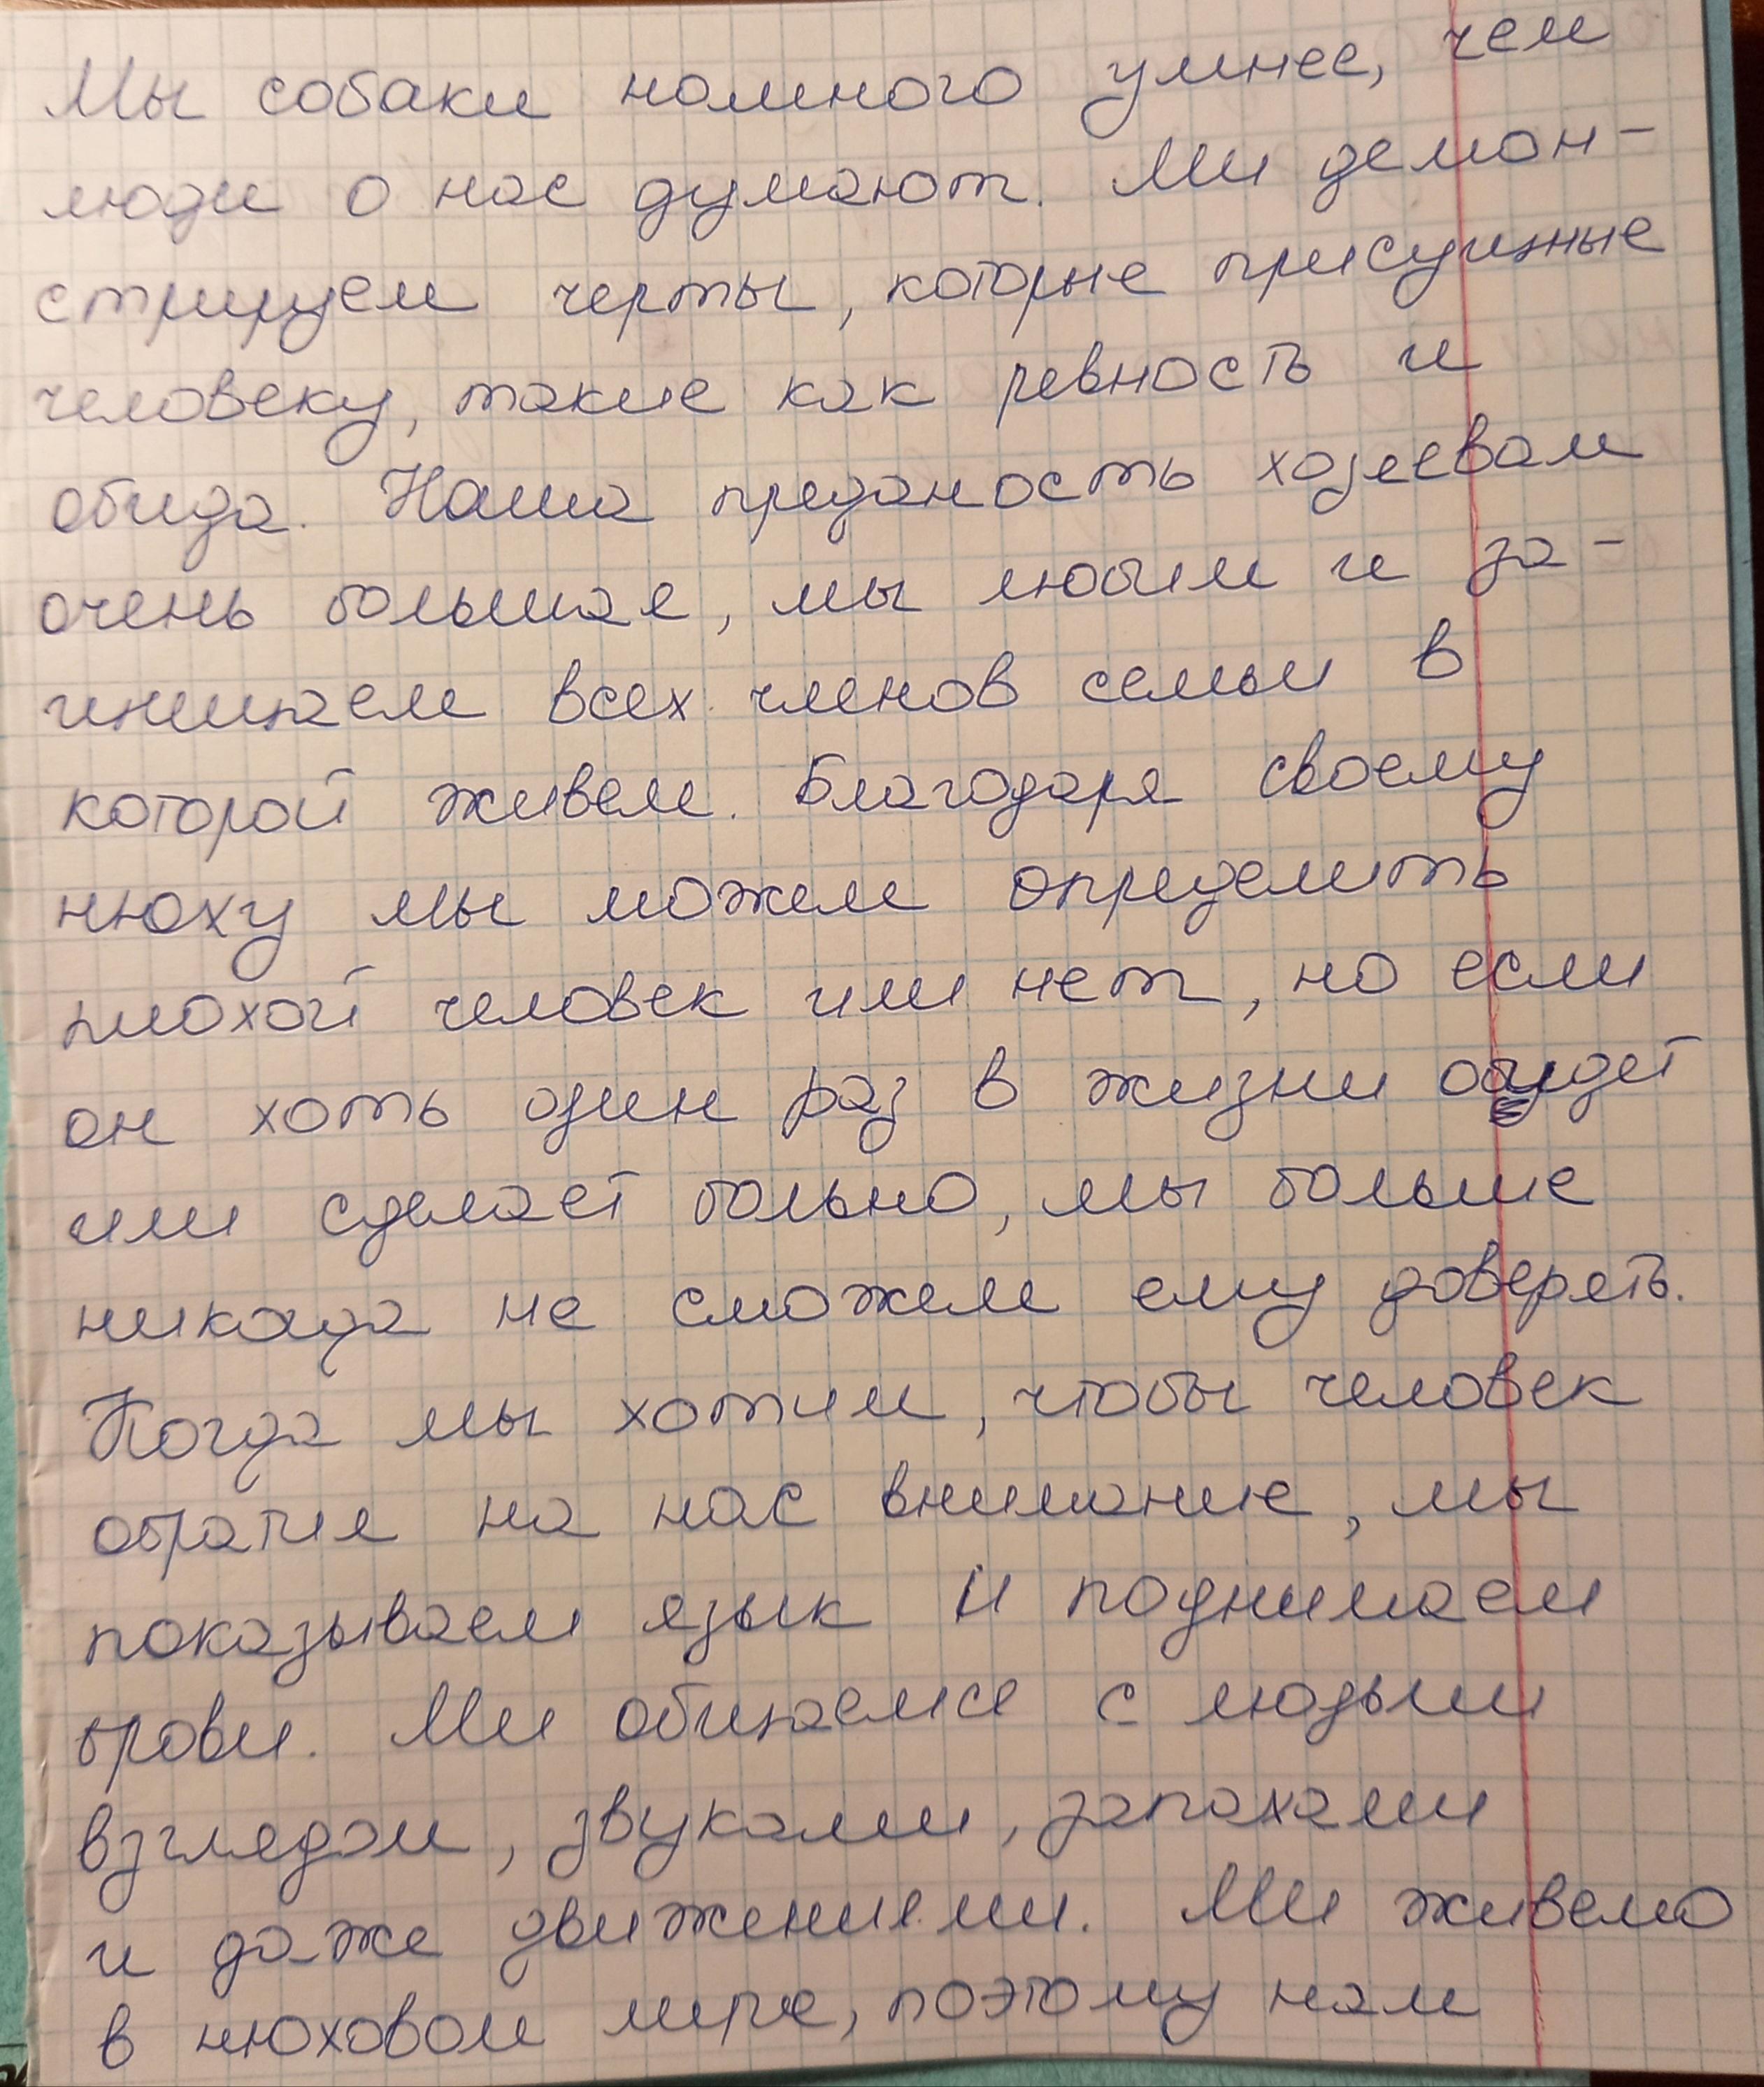 Мы собаки номного умнее, чем
люди о нас думают. Ми демон-
стрируем черты, которые присущиные
человеку, такие как ревность и
обида. Наша преданость хозяевам
очень большая, мы любим и за-
щищаем всех членов семьи в
которой живем. Благодаря своему
нюху мы можем определить
плохой человек или нет, но если
он хоть один раз в жизни
или сделает больно, мы больше
никогда не сможем ему доверять.
Когда мы хотим, чтобы человек
обратил на нас внимание, мы
показываем язык и поднимаем
брови. Ми общаемся с людьми
взглядом, звуками, запахами
и даже движениями. Ми живемо
в нюховом мире, поэтому нам